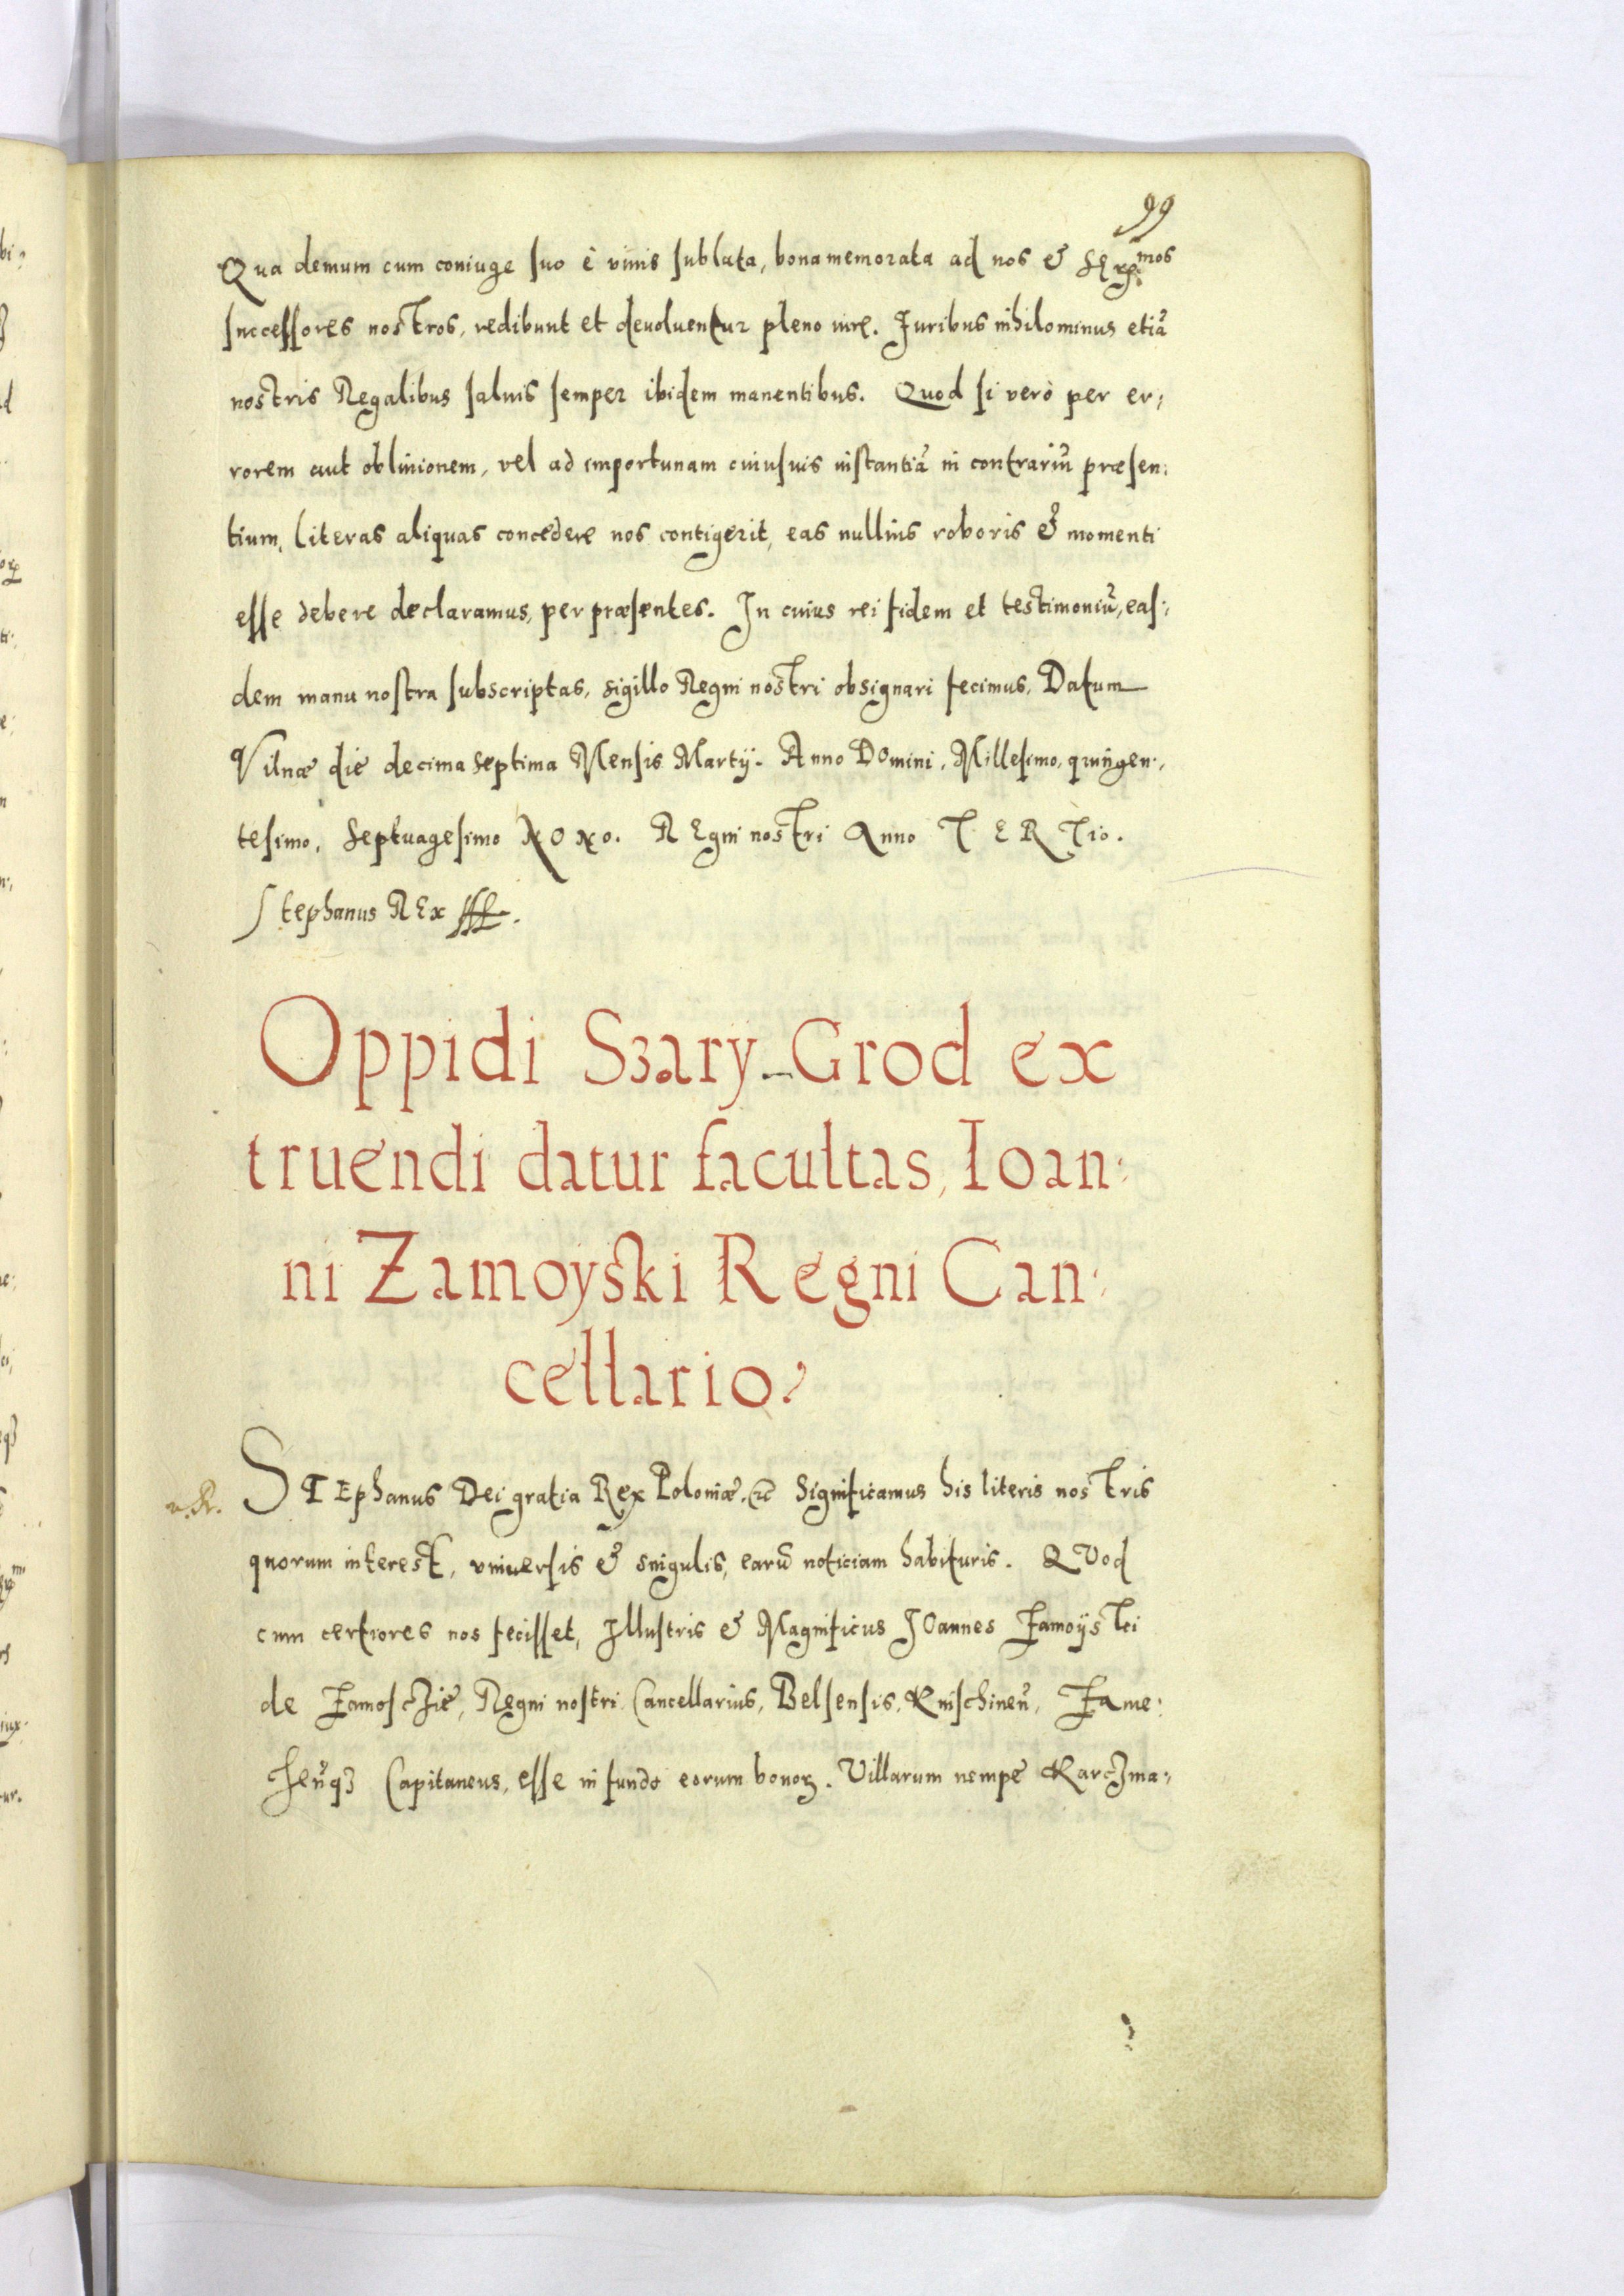 99
Qua demum cum coniuge suo è viuis sublata, bona memorata ad nos & Ser.mos
successores nostros, redibunt et deuoluentur pleno iure. Juribus nihilominus etiã
nostris Regalibus saluis semper ibidem manentibus. Quod si verò per er,
rorem aut obliuionem, vel ad importunam cuiusuis instantiã in contrariũ præsen:
tium, literas aliquas concedere nos contigerit, eas nullius roboris & momenti
esse debere declaramus, per præsentes. In cuius rei fidem et testimoniũ, eas:
dem manu nostra subscriptas, sigillo Regni nostri obsignari fecimus, Datum
Vilnæ die decima septima Mensis Martÿ. Anno Domini, Millesimo, quingen:,
tesimo, septuagesimo NoNo. REgni nostri Anno TERTio.
Stephanus REx sst.
Oppidi Szary_Grod ex
truendi datur facultas, Ioan:
ni Zamoyski Regni Can:
cellario:
STEphanus Dei gratia Rex Poloniæ. &c Significamus his literis nostris
quorum interest, vniuersis & singulis, earũ noticiam habituris. QVod
cum certiores nos fecisset, Illustris & Magnificus JOannes Zamoÿski
de Zamosczie, Regni nostri Cancellarius, Belsensis, Knischineñ, Zame:
cheñqꝫ Capitaneus, esse in fundo eorum bonoꝝ. Villarum nempe Karczma:,